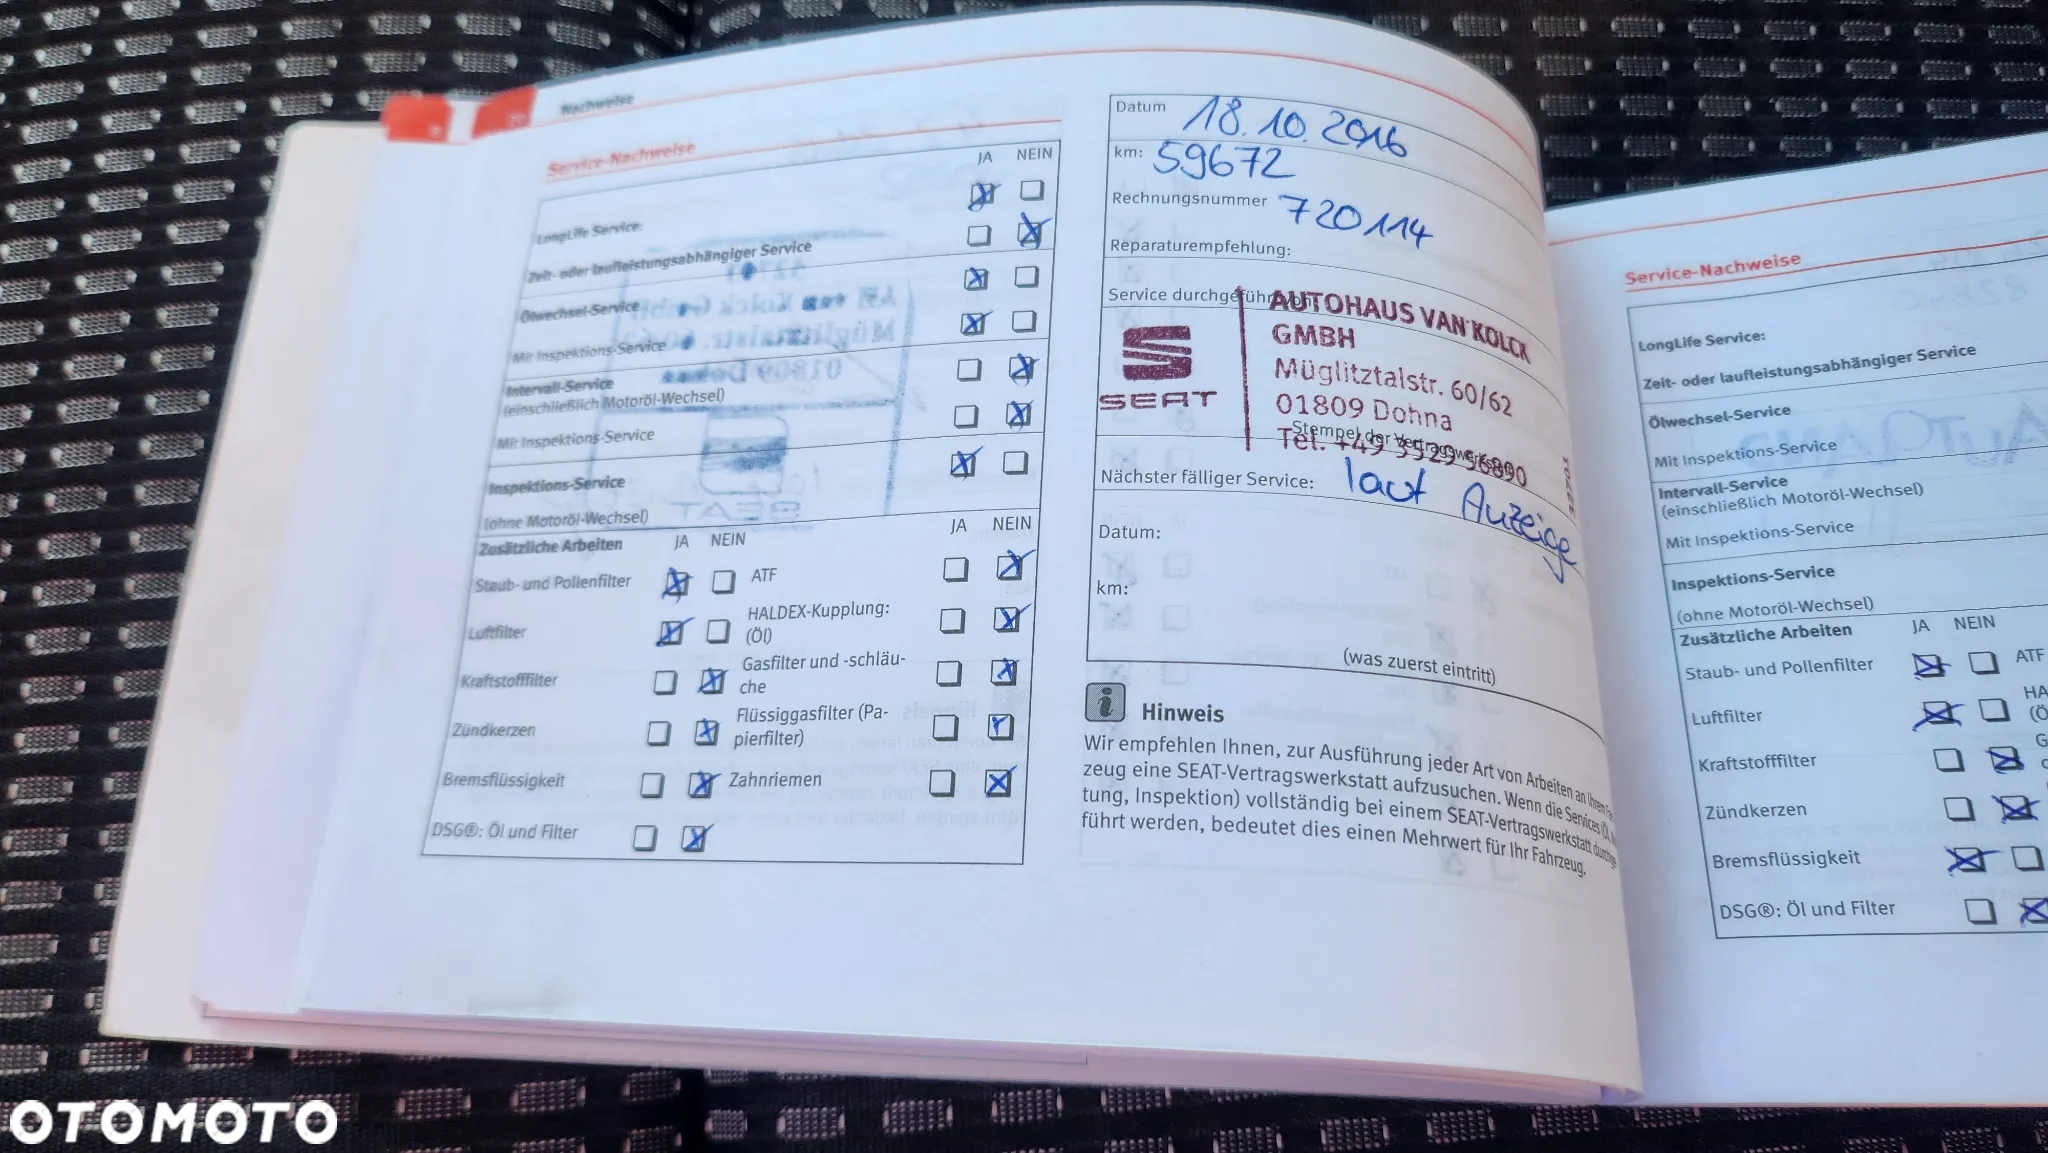 Nachweise
Service-Nachweise
JA NEIN
LongLife Service:
Zeit- oder laufleistungsabhängiger Service
Ölwechsel-Service
Mit Inspektions-Service
Intervall-Service
(einschließlich Motoröl-Wechsel)
Mit Inspektions-Service
Inspektions-Service
(ohne Motoröl-Wechsel)
Zusätzliche Arbeiten JA NEIN JA NEIN
Staub- und Pollenfilter ATF
Luftfilter HALDEX-Kupplung:
(Öl)
Kraftstofffilter Gasfilter und -schläu-
che
Zündkerzen Flüssiggasfilter (Pa-
pierfilter)
Bremsflüssigkeit Zahnriemen
DSG®: Öl und Filter
Datum 18.10.2016
km: 59672
Rechnungsnummer 720114
Reparaturempfehlung:
Service durchgeführt von:
SEAT
AUTOHAUS VAN KOLCK
GMBH
Müglitztalstr. 60/62
01809 Dohna
Tel. +49 3529 56890
Stempel der Vertragswerkstatt
Nächster fälliger Service: laut Anzeige
Datum:
km:
(was zuerst eintritt)
i Hinweis
Wir empfehlen Ihnen, zur Ausführung jeder Art von Arbeiten an Ihrem
zeug eine SEAT-Vertragswerkstatt aufzusuchen. Wenn die Services (Öl,
tung, Inspektion) vollständig bei einem SEAT-Vertragswerkstatt durchge-
führt werden, bedeutet dies einen Mehrwert für Ihr Fahrzeug.
Service-Nachweise
LongLife Service:
Zeit- oder laufleistungsabhängiger Service
Ölwechsel-Service
Mit Inspektions-Service
Intervall-Service
(einschließlich Motoröl-Wechsel)
Mit Inspektions-Service
Inspektions-Service
(ohne Motoröl-Wechsel)
Zusätzliche Arbeiten JA NEIN
Staub- und Pollenfilter ATF
Luftfilter HA
(Ö
Kraftstofffilter G
c
Zündkerzen
Bremsflüssigkeit
DSG®: Öl und Filter
OTOMOTO